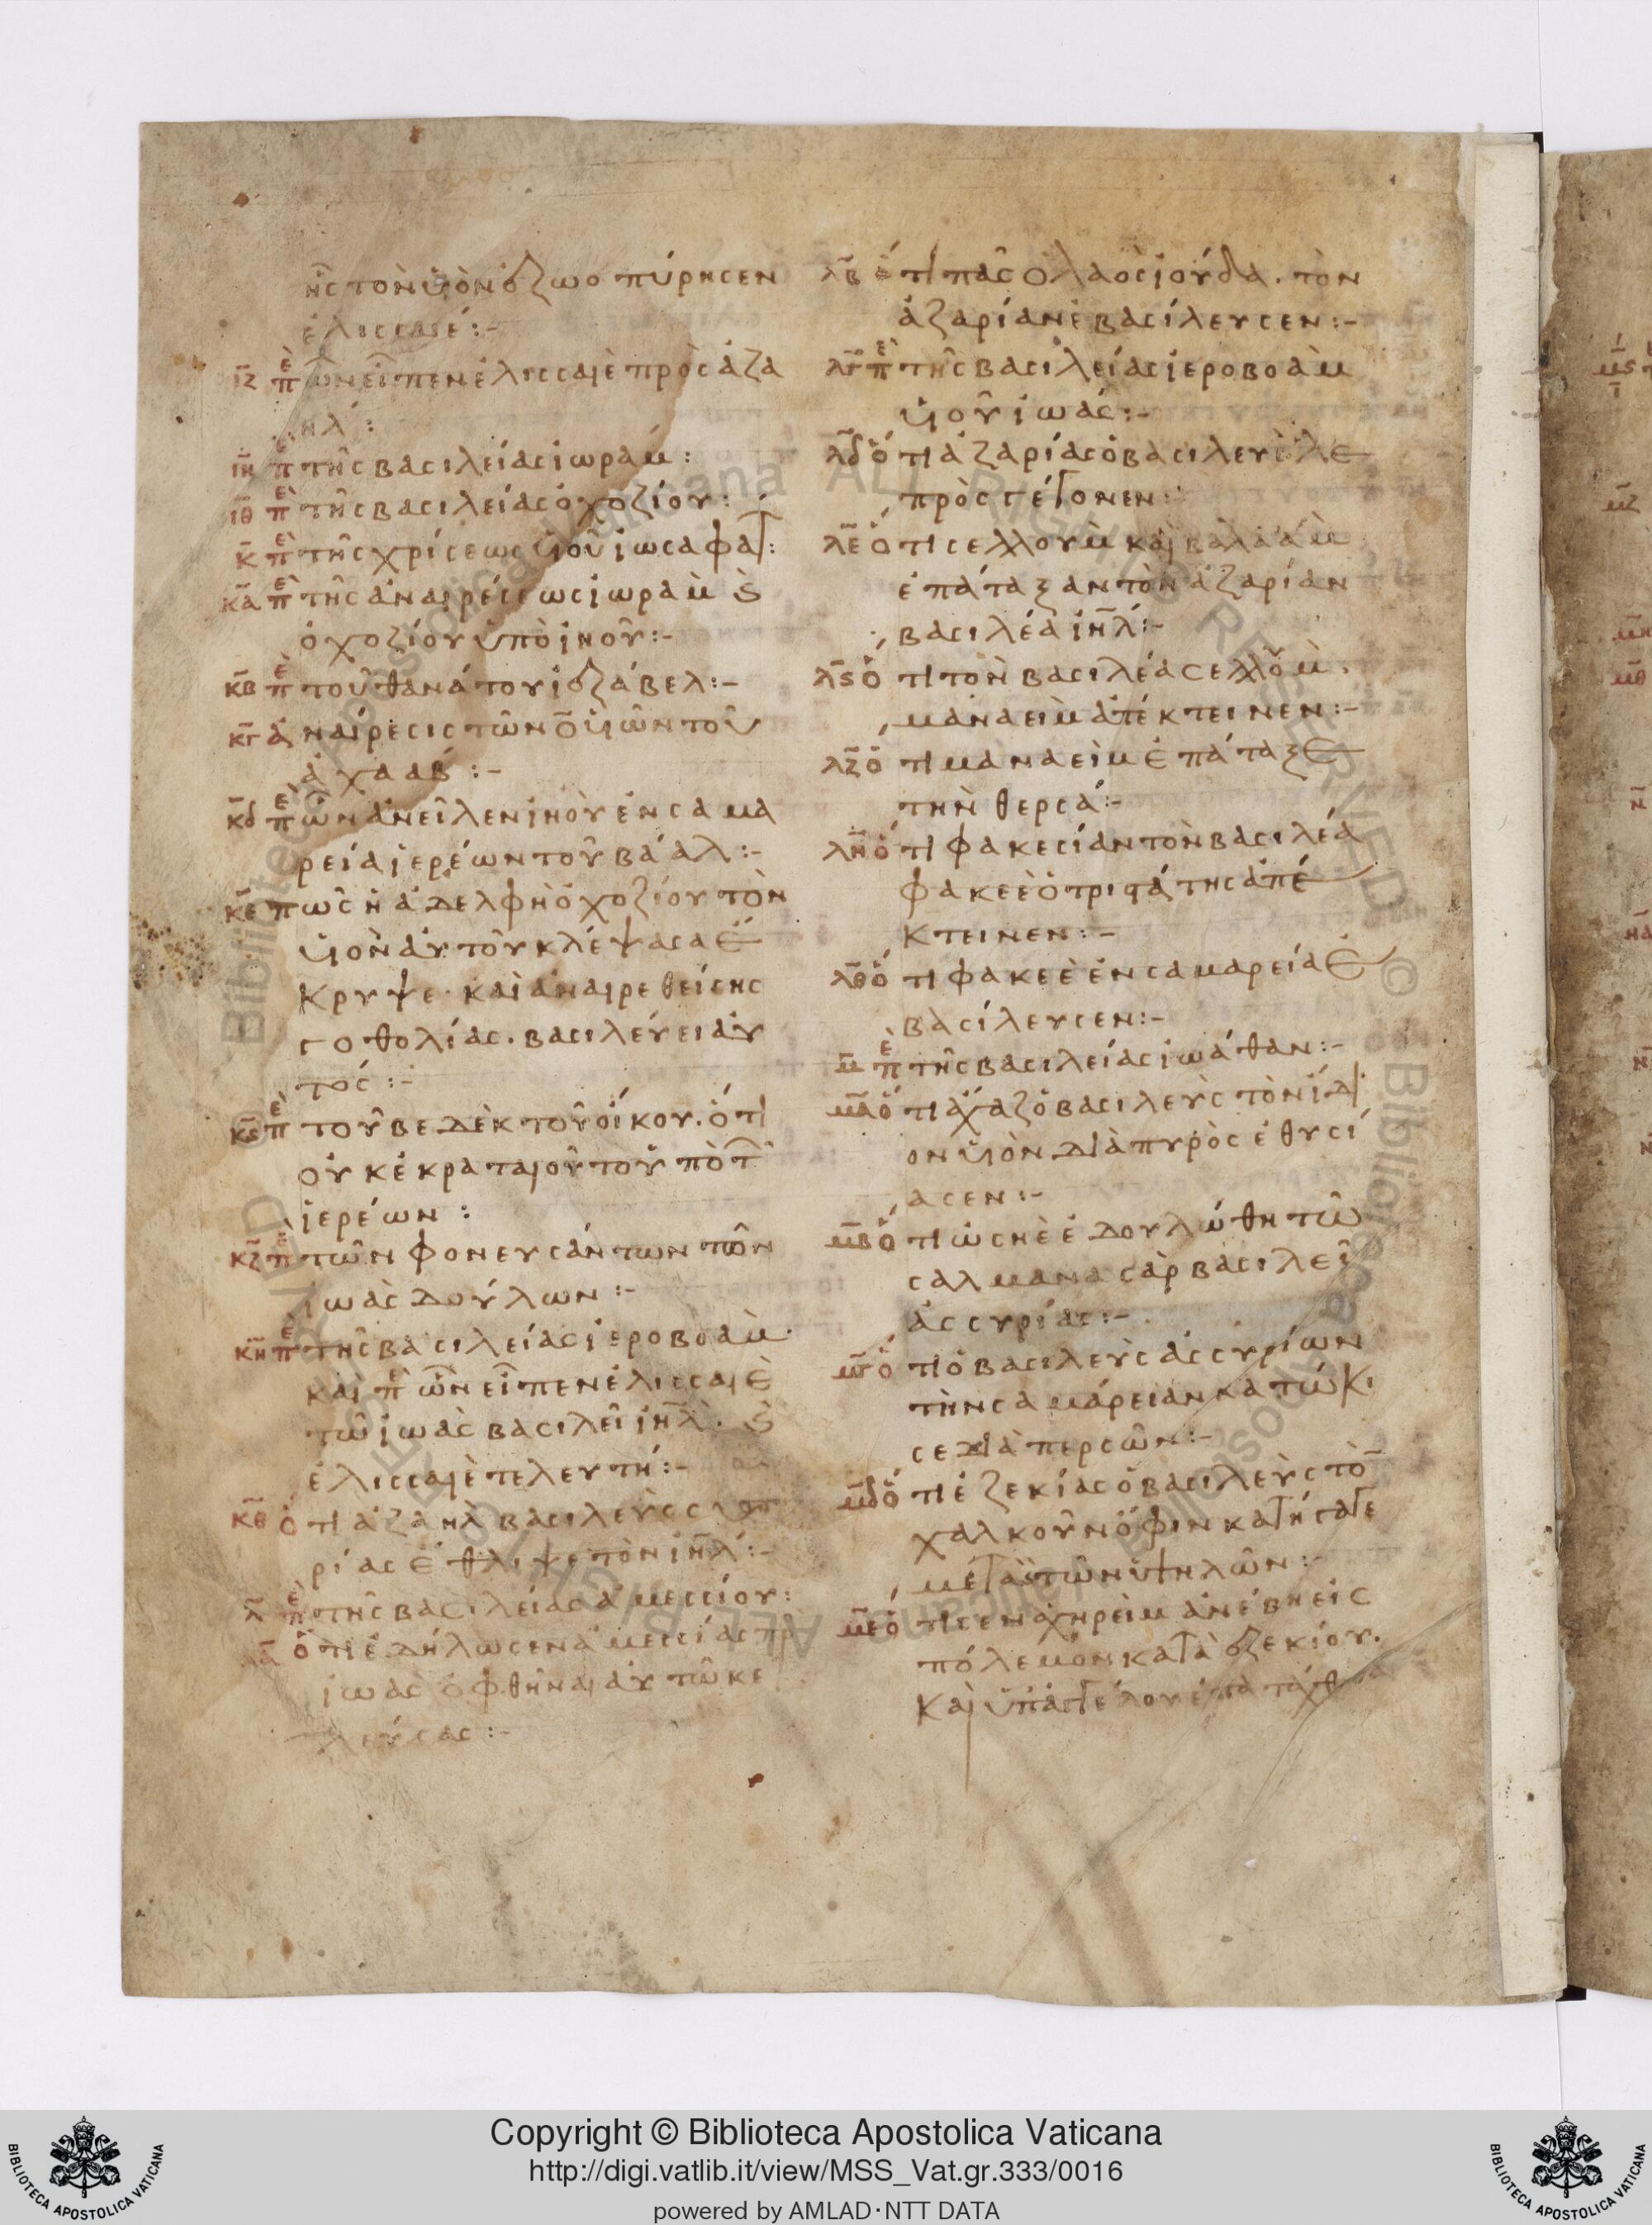 ῆς τὸν υἱὸν ἐζωοπύρησεν
ἐλισσαιέ:-
ιζ ἐπ ὧν εἶπεν ἐλισσαιὲ πρὸς ἀζα
ηλ:
ιη ἐπ τῆς βασιλείας ἰωράμ:
ιθ ἐπ τῆς βασιλείας ὀχοζίου:
κ ἐπ τῆς χρίσεως υἱοῦ ἰωσαφάτ:
κα ἐπ τῆς ἀναιρέσεως ἰωρὰμ ϗ
ὀχοζίου ὑπὸ ἰηοῦ:-
κβ ἐπ τοῦ θανάτου ἰεζάβελ:-
κγ ἀναίρεσις τῶν ο υἱῶν τοῦ
ἀχαάβ:-
κδ ἐπ ὧν ἀνεῖλεν ἰηοὺ ἐν σαμα
ρεία ἱερέων τοῦ βάαλ:-
κε πῶς ἡ ἀδελφὴ ὀχοζίου τὸν
υἱὸν ἀυτοῦ κλέψασα ἔ
κρυψε· καὶ ἀναιρεθείσης
γοθολίας. βασιλεύει ἀυ
τός:-
κς ἐπ τοῦ βεδὲκ τοῦ οἴκου. ὅτι
οὐκ ἐκραταιοῦτο ὑπὸ τ
ἱερέων:
κζ ἐπ τῶν φονευσάντων τὸν
ἰωὰς δούλων:-
κη ἐπ τῆς βασιλείας ἱεροβοὰμ.
καὶ ἐπ ὧν εἶπεν ἐλισσαιὲ
τῶ ἰωὰς βασιλεῖ ιηλ. ϗ
ἐλισσαιὲ τελευτή:-
κθ ὅτι ἀζαὴλ βασιλεὺς συ
ρίας ἔθλιψε τὸν ιηλ:-
λ ἐπ τῆς βασιλείας ἀμεσσίου:
λα ὅτι ἐδήλωσεν ἀμεσσίας πρ
ἰωὰς ὀφθῆναι ἀυτῶ κε
λεύσας:-
λβ ὅτι πᾶς ὁ λαὸς ἰούδα. τὸν
ἀζαρίαν ἐβασίλευσεν:-
λγ ἐπ τῆς βασιλείας ἱεροβοὰμ
υἱοῦ ἰωάς:-
λδ ὅτι ἀζαρίας ὁ βασιλεὺς λε
πρὸς γέγονεν:
λε ὅτι σελλοὺμ καὶ βαλαὰμ
ἐπάταξαν τὸν ἀζαρίαν
βασιλέα ιηλ:-
λς ὅτι τὸν βασιλέα σελλοὺμ.
μαναεὶμ ἀπέκτεινεν:-
λζ ὅτι μαναεὶμ ἐπάταξε
τὴν θερσά:-
λη ὅτι φακεσίαν τὸν βασιλέα
φακεὲ ὁ τριστάτης ἀπέ
κτεινεν:-
λθ ὅτι φακεὲ ἐν σαμαρεία ἐ
βασίλευσεν:-
μ ἐπ τῆς βασιλείας ἰωάθαν:-
μα ὅτι ἄχαζ ὁ βασιλεὺς τὸν ἴδι
ον υἱὸν διὰ πυρὸς ἐθυσί
ασεν:-
μβ ὅτι ὡσηὲ ἐδουλώθη τῶ
σαλμανασὰρ βασιλεῖ
ἀσσυρίας:-
μγ ὅτι ὁ βασιλεὺς ἀσσυρίων
τὴν σαμάρειαν κατώκι
σε διὰ περσῶν:-
μδ ὅτι ἐζεκίας ὁ βασιλεὺς τὸ
χαλκοῦν ὄφιν κατήγαγε
μετὰ τῶν ὑψηλῶν:-
με ὅτι σεναχηρεὶμ ἀνέβη εἰς
πόλεμον κατὰ ἐζεκίου.
καὶ ὑπ ἀγγέλου ἐπατάχθη
Copyright © Biblioteca Apostolica Vaticana
http://digi.vatlib.it/view/MSS_Vat.gr.333/0016
powered by AMLAD·NTT DATA